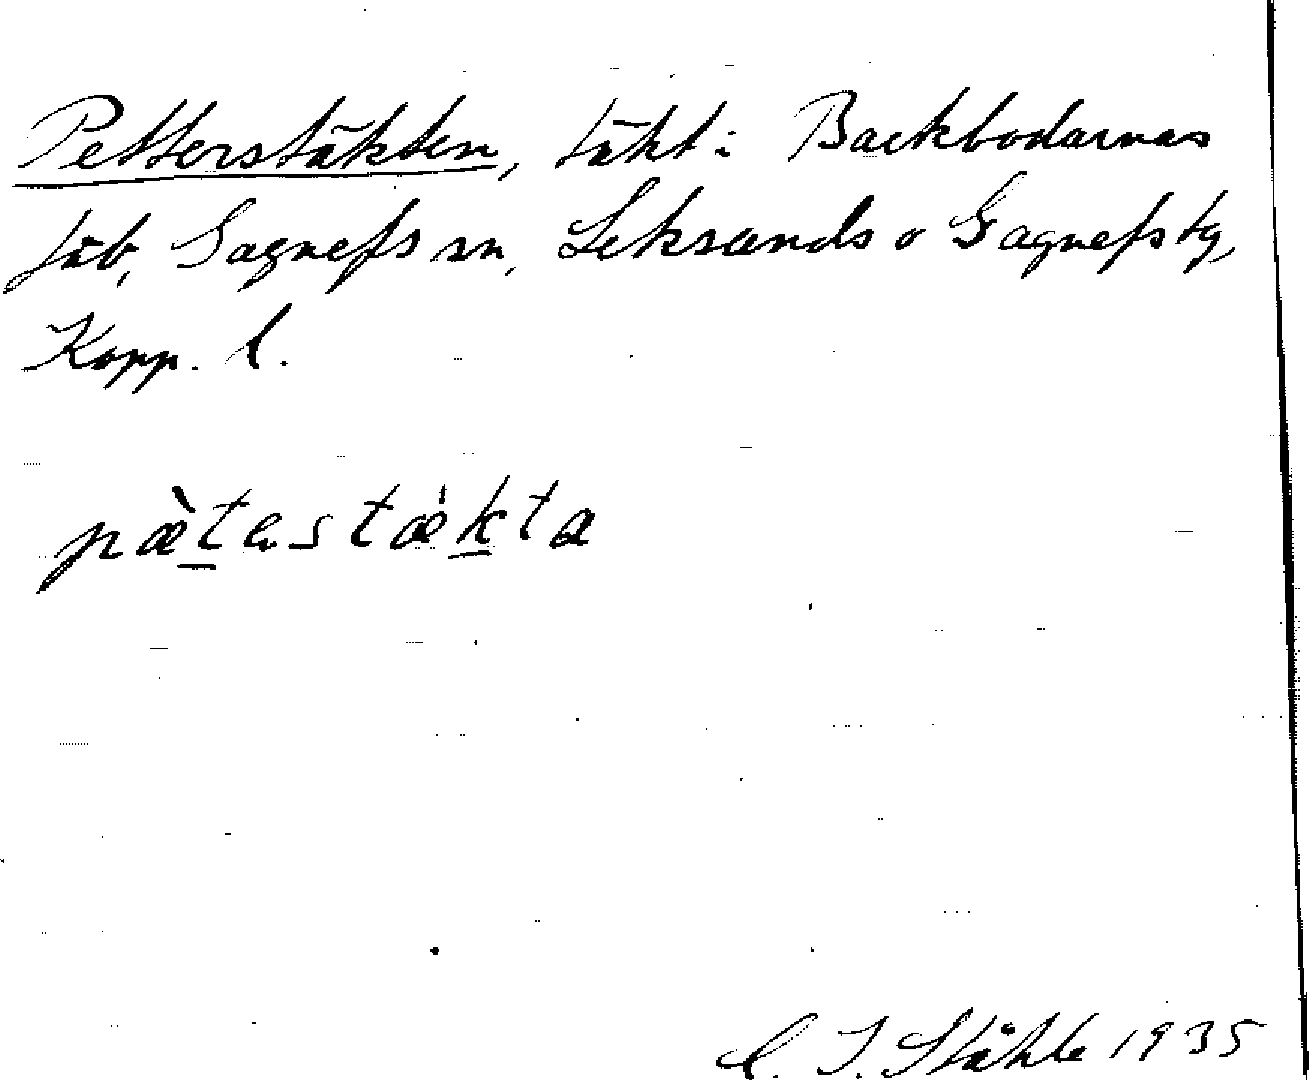 Petterstäkten, täkt i Backbodarnas
fäb, Gagnefs sn, Leksands o Gagnefs tg,
Kopp. l.
pæ̀tɐstækta
C. I. Ståhle 1935